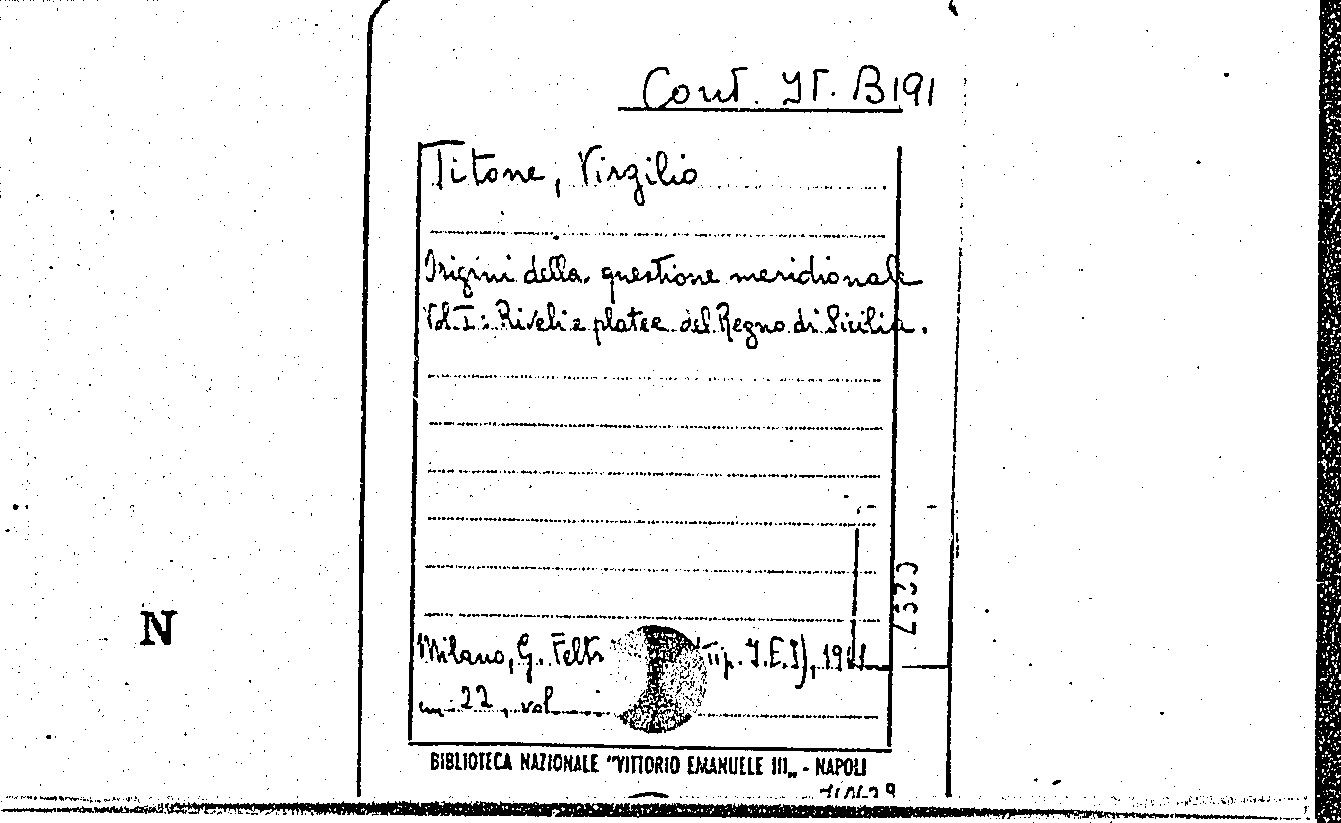 Cont. It. B191
Titone, Virgilio
Origini della questione meridionale
Vol. I: Riveli e platee del Regno di Sicilia.
N
Milano, G. Feltr (Tip. I.E.I), 1961
cm. 22, vol
BIBLIOTECA NAZIONALE "VITTORIO EMANUELE III„ - NAPOLI